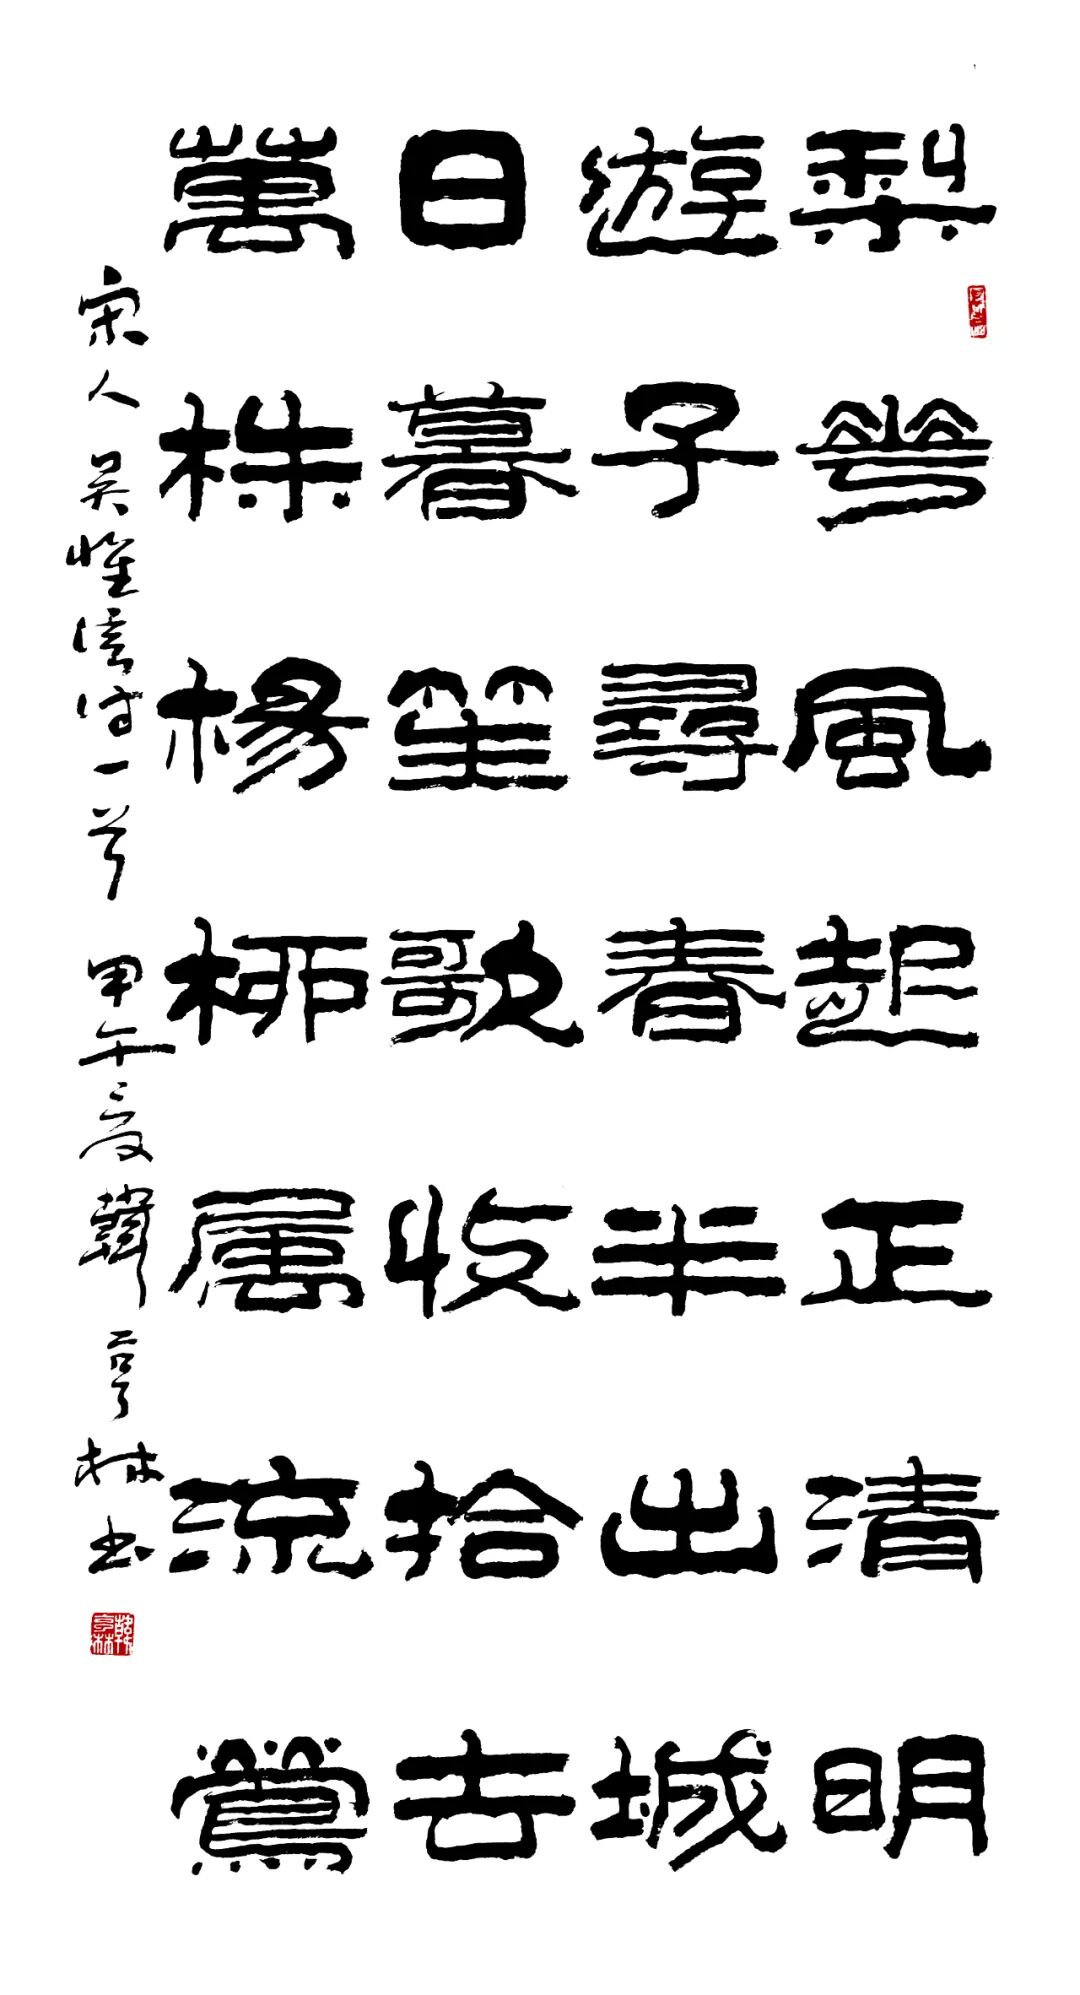 梨華風起正清明
遊子尋春半出城
日暮笙歌收拾去
萬株楊柳属流鶯
宋人吴惟信诗一首 甲午之夏 韓亨林书
韓亨林